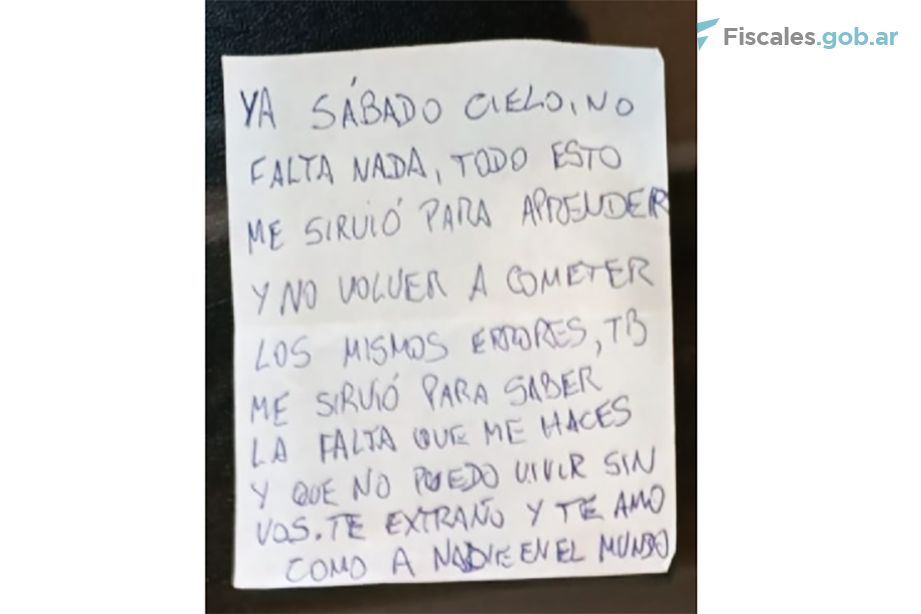 Fiscales.gob.ar
YA SÁBADO CIELO, NO
FALTA NADA, TODO ESTO
ME SIRVIÓ PARA APRENDER
Y NO VOLVER A COMETER
LOS MISMOS ERRORES, TB
ME SIRVIÓ PARA SABER
LA FALTA QUE ME HACES
Y QUE NO PUEDO VIVIR SIN
VOS. TE EXTRAÑO Y TE AMO
COMO A NADIE EN EL MUNDO